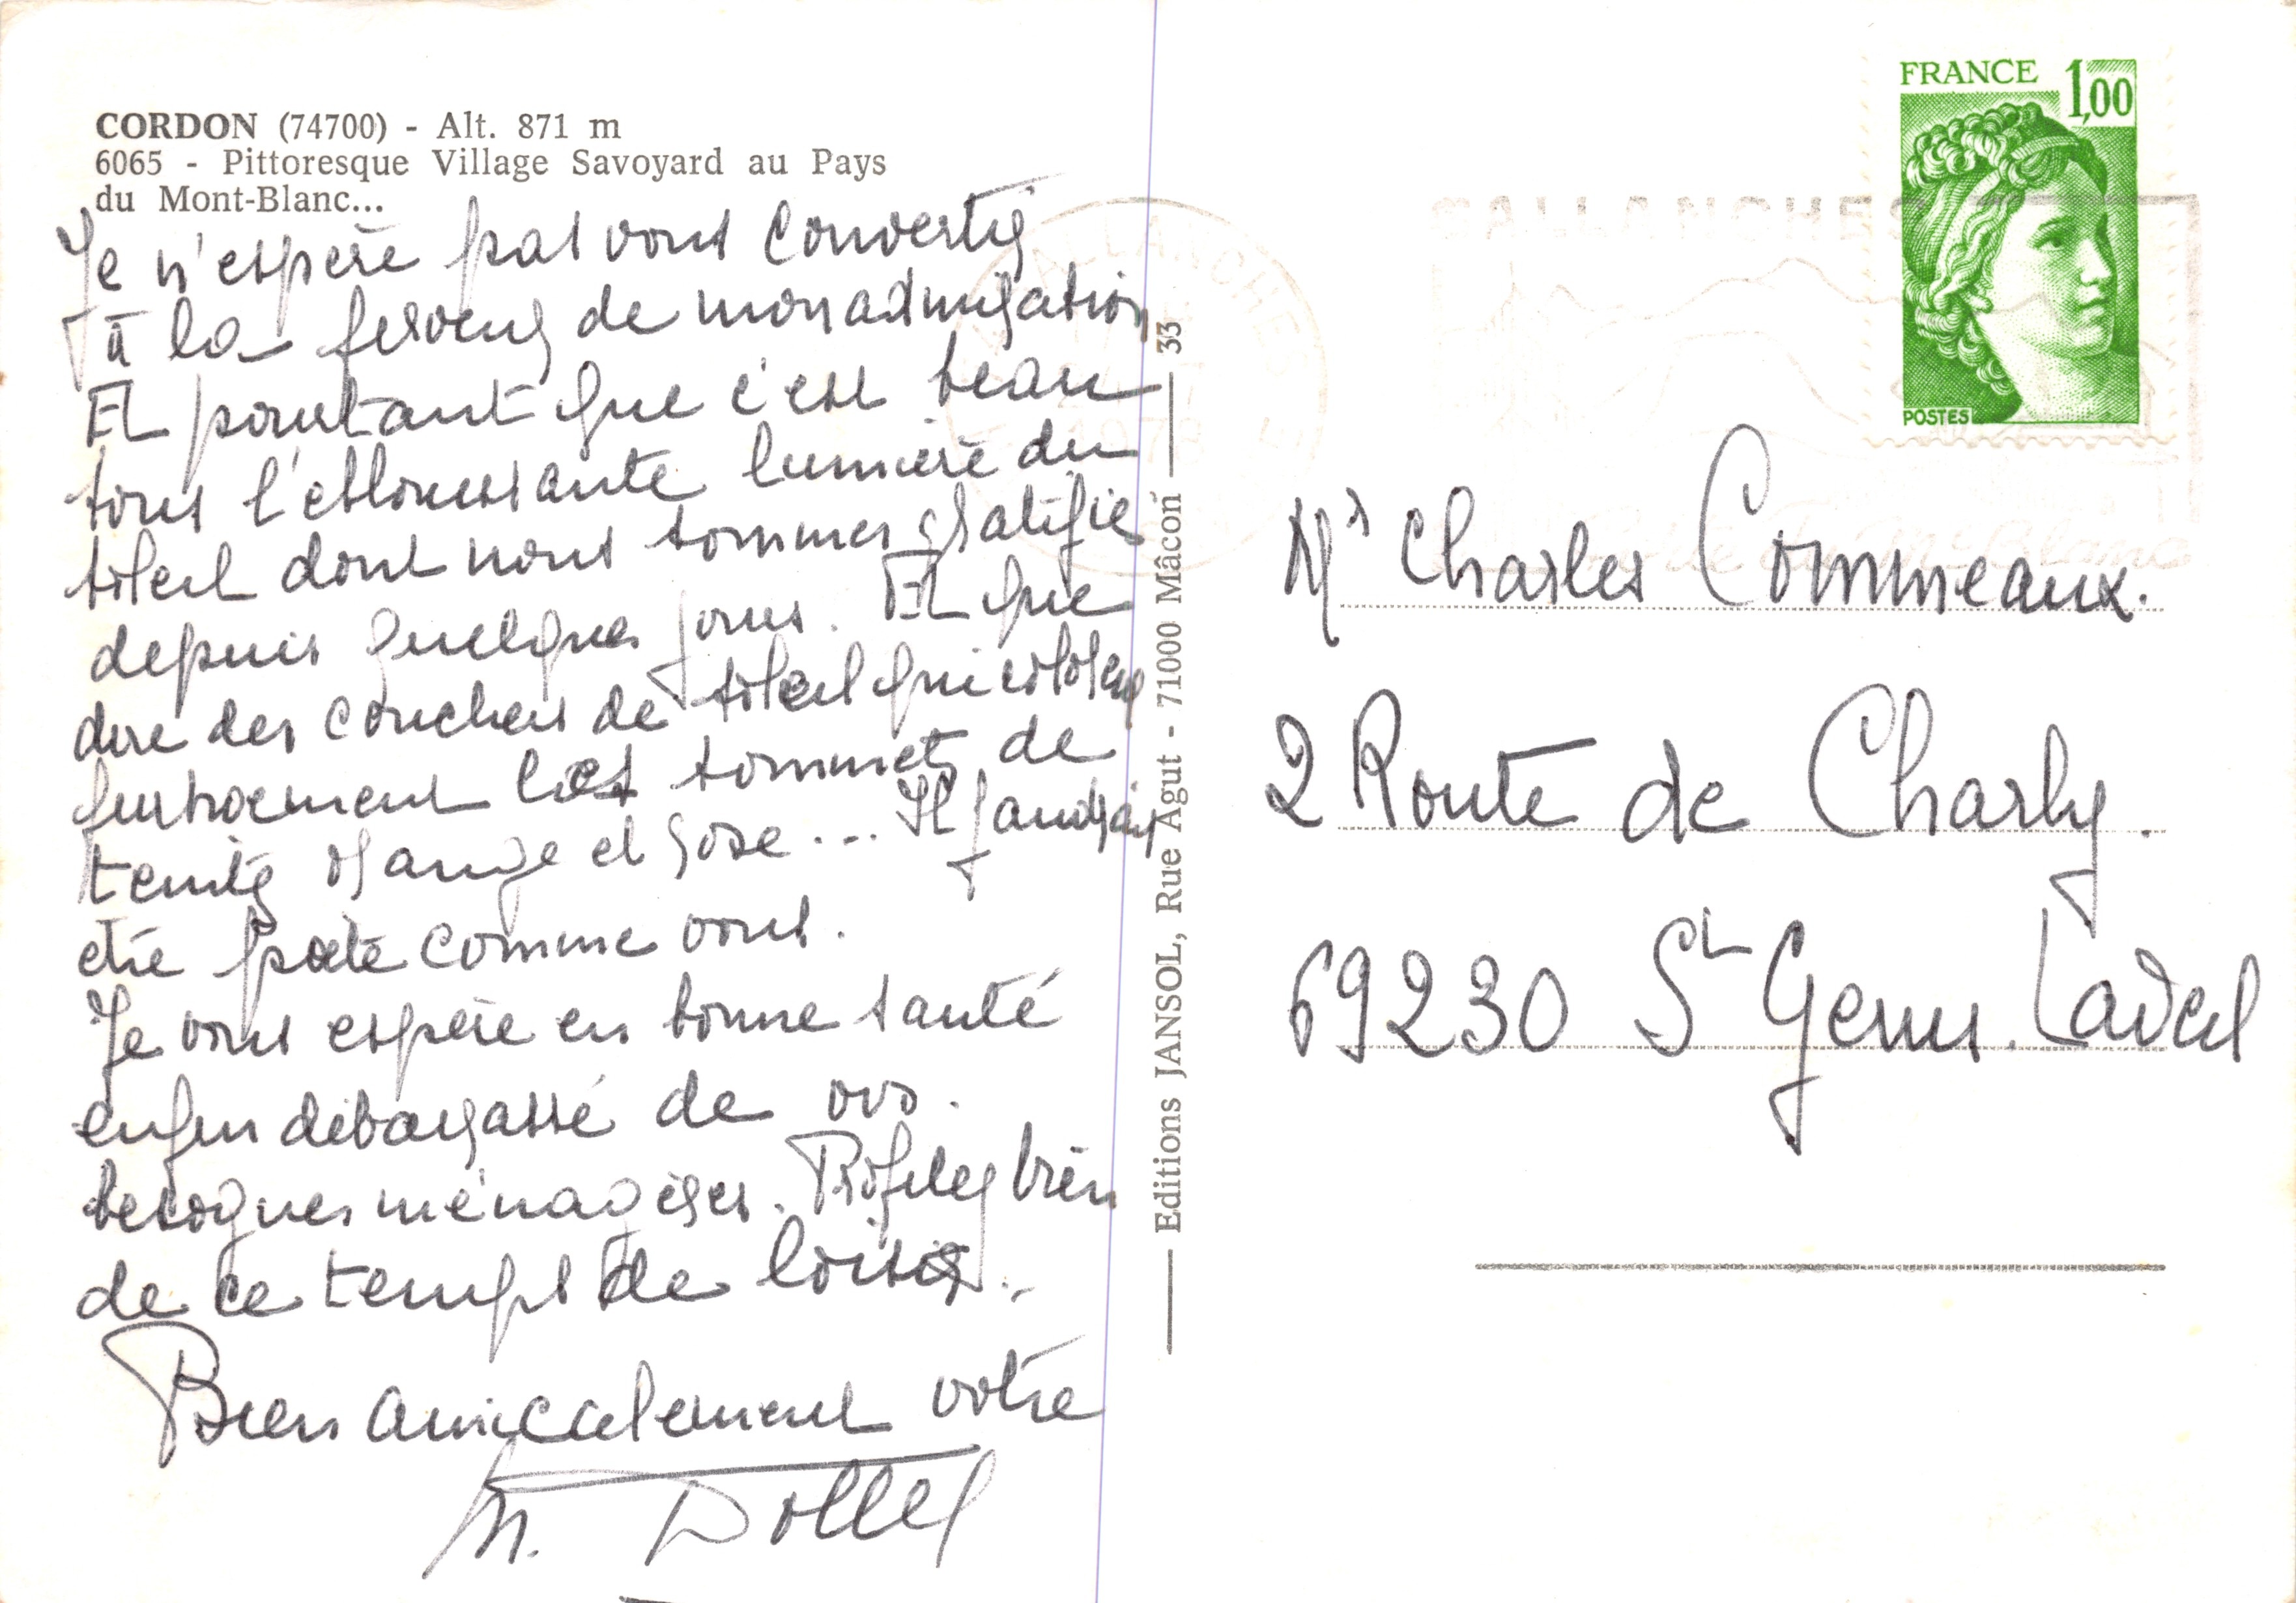 CORDON (74700) - Alt. 871 m
6065 - Pittoresque Village Savoyard au Pays
du Mont-Blanc...
Je n'espère pas vous convertir
à la ferveur de mon admiration
Et pourtant que c'est beau
sous l'éblouissante lumière du
soleil dont nous sommes gratifié
depuis quelques jours. Et que
dire des couchers de soleil qui colorent
furtivement les sommets de
teinte orange et rose... Il faudrait
être poète comme vous.
Je vous espère en bonne santé
enfin débarrassé de vos
besognes ménagères. Profitez bien
de ce temps de loisir..
Bien amicalement votre
M. Dollet
Editions JANSOL, Rue Agut - 71000 Mâcon 33
FRANCE 1,00
POSTES
SALLANCHES
Mr Charles Commeaux.
2 Route de Charly.
69230 St Genis. Laval